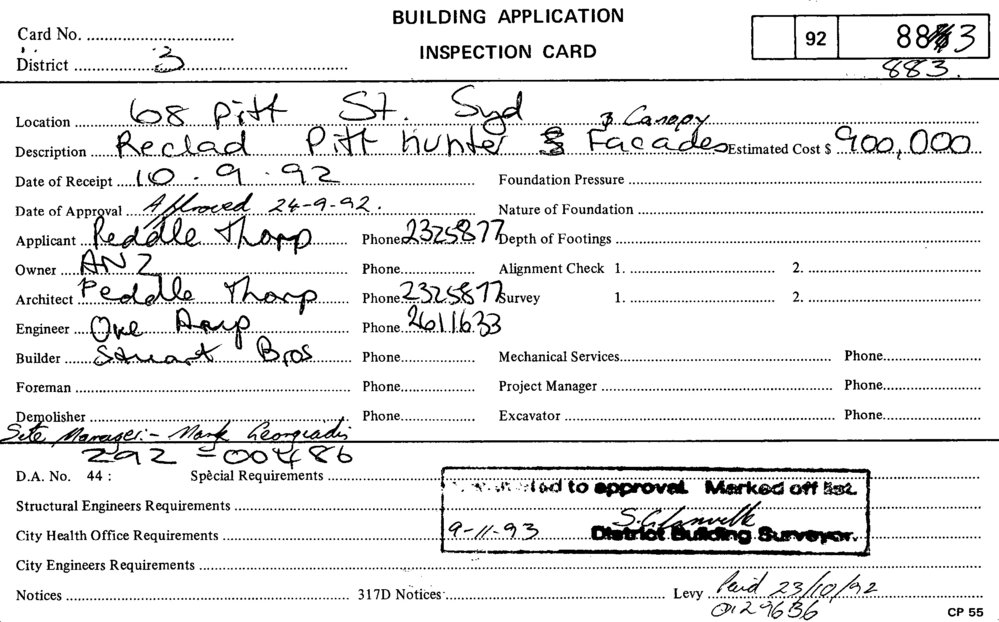 BUILDING APPLICATION
INSPECTION CARD
Card No.
District 3
92 883
883.
Location 68 Pitt St. Syd
& Canopy
Description Reclad Pitt Hunter Facades Estimated Cost $ 900,000
Date of Receipt 10.9.92 Foundation Pressure
Date of Approval Approved 24-9-92. Nature of Foundation
Applicant Peddle Thorp Phone 2325877 Depth of Footings
Owner ANZ Phone Alignment Check 1. 2.
Architect Peddle Thorp Phone 2325877 Survey 1. 2.
Engineer Ove Arup Phone 2611633
Builder Stuart Bros Phone Mechanical Services Phone
Foreman Phone Project Manager Phone
Demolisher Phone Excavator Phone
Site Manager:- Mark Georgiadis
Z92-00486
D.A. No. 44: Special Requirements
to approval. Marked off list.
Structural Engineers Requirements
City Health Office Requirements 9-11-93 District Building Surveyor.
City Engineers Requirements
Notices 317D Notices Levy Paid 23/10/92
0129636
CP 55